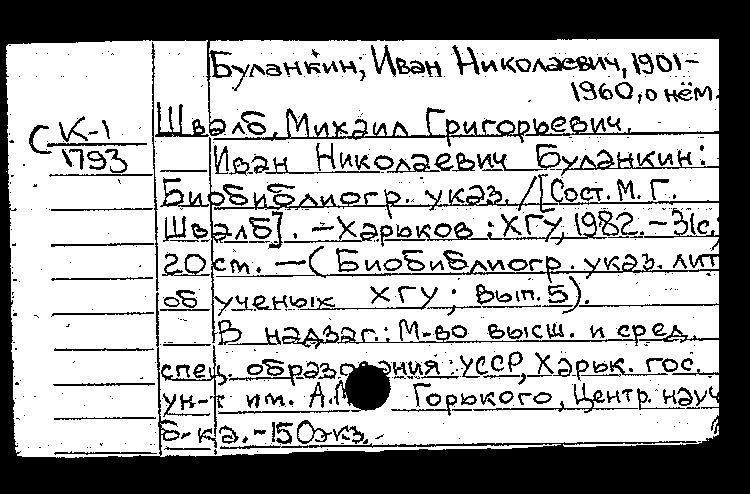 Буланкин, Иван Николаевич, 1901-
1960, о нём.
С К-1
1793
Швалб, Михаил Григорьевич.
Иван Николаевич Буланкин:
Биобиблиогр. указ. /[Сост. М. Г.
Швалб]. – Харьков : ХГУ, 1982. – 31с.;
20 см. – (Биобиблиогр. указ. лит
об ученых ХГУ; Вып. 5).
В надзаг.: М-во высш. и сред.
спец. образования : УССР, Харьк. гос.
ун-т им. А.М. Горького, Центр. науч
б-ка. – 150 экз.